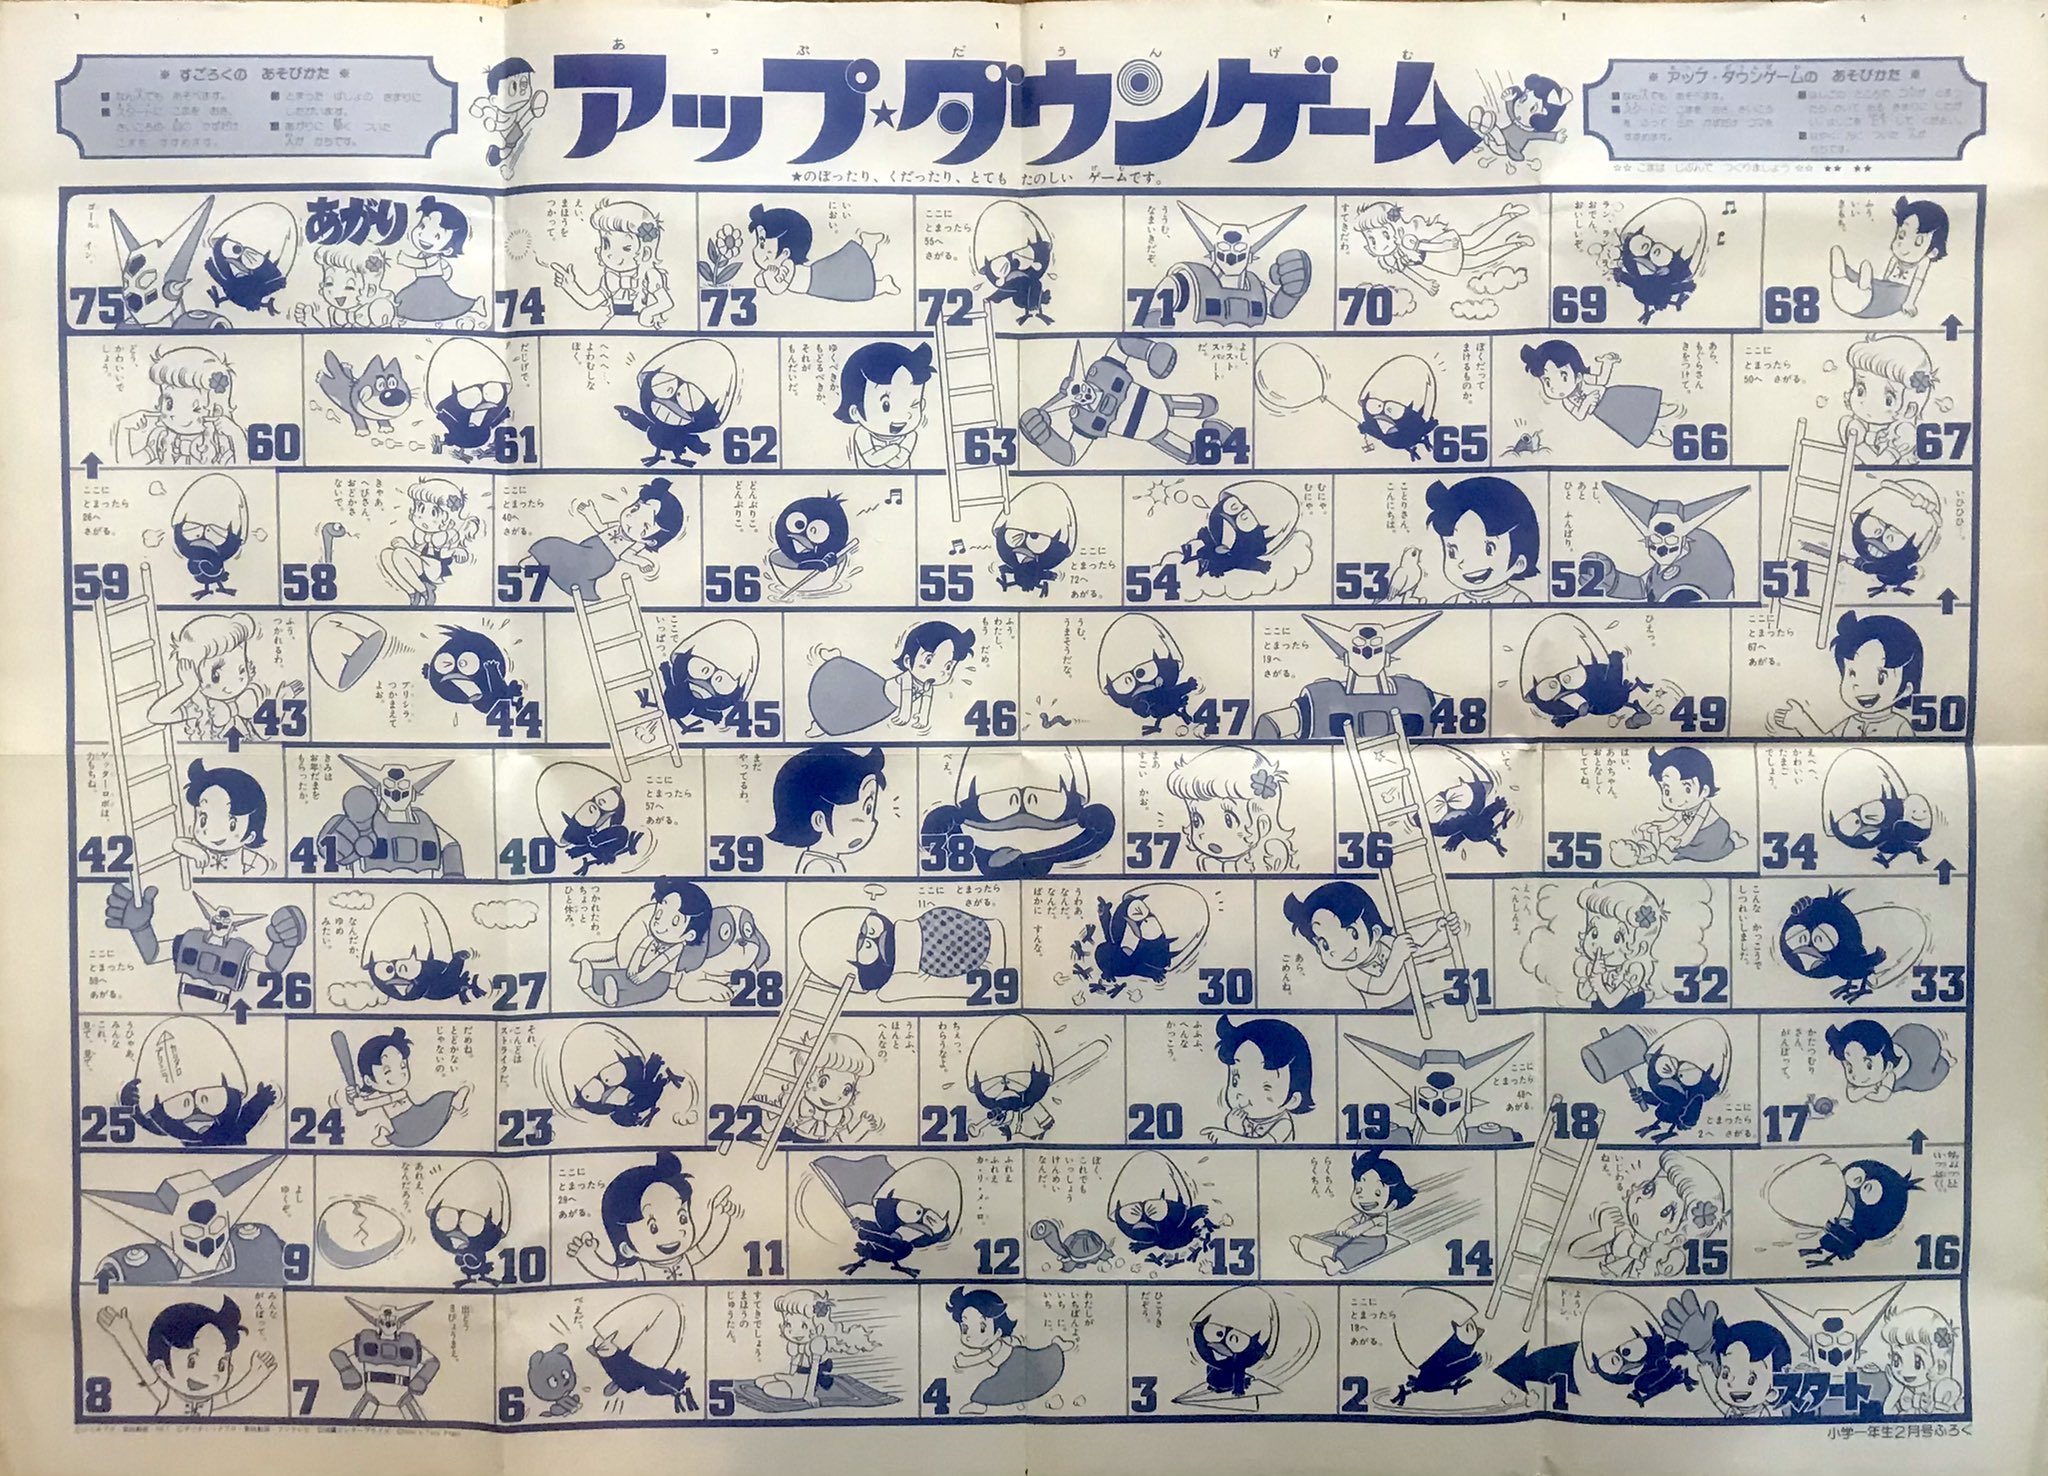 あっぷだうんげむ
アップ★ダウンゲーム
★のぼったり、くだったり、とても たのしい ゲームです。
※ すごろくの あそびかた ※
■なん人でも あそべます。
■スタートに こまを おき、
さいころの 目の かずだけ
こまを すすめます。
■とまった ばしょの きまりに
したがいます。
■あがりに 早く ついた
人が かちです。
※ アップ・ダウンゲームの あそびかた ※
■なん人でも あそべます。
☆☆ こまは じぶんで つくりましょう ☆☆ ★★ ★★
ゴール イン。
あがり
75
えい、
まほうを
つかって。
74
いい
におい。
73
ここに
とまったら
55へ
さがる。
72
ううむ、
なまいきだぞ。
71
すてきだわ。
70
ラン、ラン、ラン。
おでん、
おいしいぞ。
69
ふう、
いい
きもち。
68
どう、
かわいいで
しょう。
60
だじげで。
61
へへへ…、
よわむしな
ぼく。
62
ゆくべきか、
もどるべきか、
それが
もんだいだ。
63
よし、
ラスト
スパート
だ。
64
ぼくだって
まけるものか。
65
あら、
もぐらさん
きをつけて。
66
ここに
とまったら
50へ さがる。
67
ここに
とまったら
26へ
さがる。
59
きゃあ、
へびさん、
おどかさ
ないで。
58
ここに
とまったら
40へ
さがる。
57
どんぶりこ。
どんぶりこ。
56
ここに
とまったら
72へ
あがる。
55
むにゃ、
むにゃ。
54
ことりさん、
こんにちは。
53
よし、
あと
ひと ふんばり。
52
いひひひ…。
51
ふう、
つかれるわ。
43
プリシラ、
つかまえて
よお。
44
ここで
いっぱつ。
45
ふう。
わたし、
もう だめ。
46
うむ、
うまそうだな。
47
ここに
とまったら
19へ
さがる。
48
ひえっ。
49
ここに
とまったら
67へ
あがる。
50
ゲッターロボは、
力もちね。
42
きみは
お年だまを
もらったか。
41
ここに
とまったら
57へ
あがる。
40
まだ
やってるわ。
39
べえ。
38
まあ
すごい かお。
37
いて。
36
はい、
あかちゃん、
おとなしく
しててね。
35
えへへ、
かわいい
たまご
でしょう。
34
ここに
とまったら
59へ
あがる。
26
なんだか、
ゆめ
みたい。
27
つかれたわ。
ちょっと
ひと休み。
28
ここに とまったら
11へ さがる。
29
うわあ、
なんだ、
なんだ。
ばかに すんな。
30
あら、
ごめんね。
31
えへん、
へんしんよ。
32
こんな かっこうで
しつれいしました。
33
うひゃあ、
みんな
これ、
見て、見て。
25
だめね。
とどかない
じゃないの。
24
それ、
こんどは
ストライクだ。
23
うふふ、
ほんと
へんなの。
22
ちぇっ、
わらうなよ。
21
ふふふ、
へんな
かっこう。
20
ここに
とまったら
48へ
あがる。
19
ここに
とまったら
2へ さがる。
18
かたつむり
さん、
がんばって。
17
よし
ゆくぞ。
9
あれえ、
なんだろう。
10
ここに
とまったら
29へ
あがる。
11
ふれえ
ふれえ
カ・リ・メ・ロ。
12
ぼく、
これでも
いっしょう
けんめい
なんだ。
13
らくちん。
らくちん。
14
いじわる
ねえ。
15
16
みんな
がんばって。
8
出どう
5びょうまえ。
7
べえだ。
6
すてきでしょう。
まほうの
じゅうたん。
5
わたしが
いちばんよ。
いち に。
いち に。
4
ひこうき
だぞう。
3
ここに
とまったら
18へ
あがる。
2
ようい
ドーン。
1
スタート
小学一年生2月号ふろく